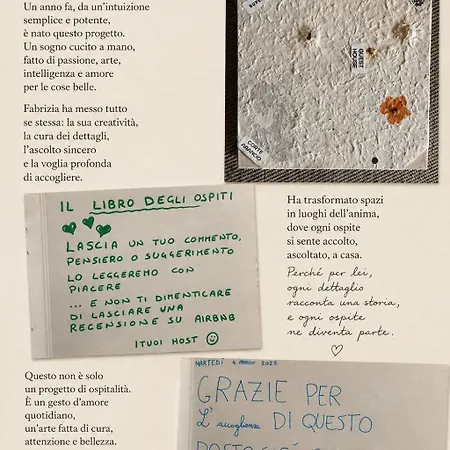 Un anno fa, da un'intuizione
semplice e potente,
è nato questo progetto.
Un sogno cucito a mano,
fatto di passione, arte,
intelligenza e amore
per le cose belle.
Fabrizia ha messo tutto
se stessa: la sua creatività,
la cura dei dettagli,
l'ascolto sincero
e la voglia profonda
di accogliere.
GUEST
HOUSE
CORTE
ARANCIO
IL LIBRO DEGLI OSPITI
LASCIA UN TUO COMMENTO,
PENSIERO O SUGGERIMENTO
LO LEGGEREMO CON
PIACERE
... E NON TI DIMENTICARE
DI LASCIARE UNA
RECENSIONE SU AIRBNB
I TUOI HOST
Ha trasformato spazi
in luoghi dell'anima,
dove ogni ospite
si sente accolto,
ascoltato, a casa.
Perché per lei,
ogni dettaglio
racconta una storia,
e ogni ospite
ne diventa parte.
Questo non è solo
un progetto di ospitalità.
È un gesto d'amore
quotidiano,
un'arte fatta di cura,
attenzione e bellezza.
MARTEDÌ 4 MARZO 2025
GRAZIE PER
L'accoglienza DI QUESTO